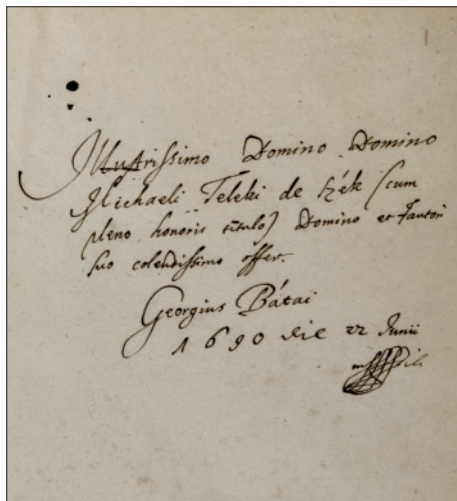 Illustrissimo Domino Domino
Michaeli Teleki de Szék (cum
pleno honoris titulo) Domino et Fautori
suo colendissimo offert.
Georgius Bátai
1690 die 22 Junii